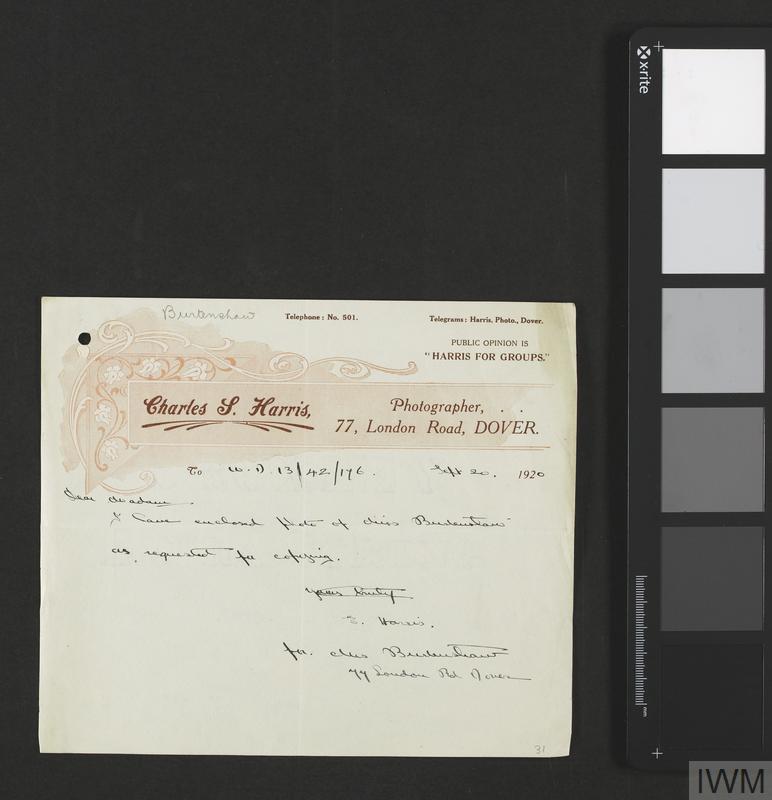 Burtenshaw
Telephone: No. 501.
Telegrams: Harris, Photo., Dover.
PUBLIC OPINION IS
"HARRIS FOR GROUPS."
Charles S. Harris,
Photographer, . .
77, London Road, DOVER.
To W.D. 13/42/176. Sept 20. 1920
Dear Madam.
I have enclosed photo of Miss Burtenshaw
as requested for copying.
Yours truly
E. Harris.
for. Miss Burtenshaw
77 London Rd Dover
31
x-rite
mm
IWM